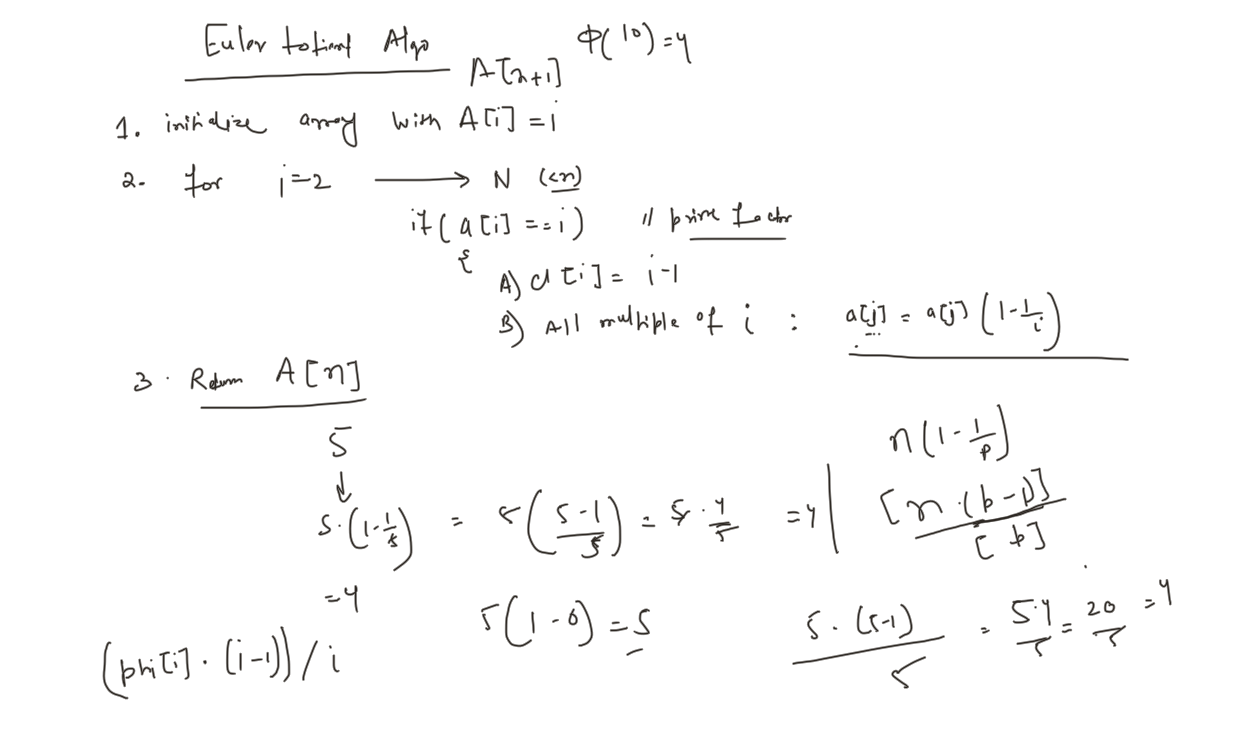 Euler totient Algo φ(10)=4
A[n+1]
1. initialize array with A[i] = i
2. for i=2 ⟶ N (<n)
if ( a[i] == i ) // prime factor
{
A) a[i] = i-1
B) All multiple of i : a[j] = a[j] (1-1/i)
3. Return A[n]
5
↓
5·(1-1/5) = 5((5-1)/5) = 5·4/5 =4
=4
n(1-1/p)
[n·(p-1)]/[p]
5(1-0)=5
5·(5-1)/5 = 5·4/5 = 20/5 =4
(phi[i]·(i-1))/i